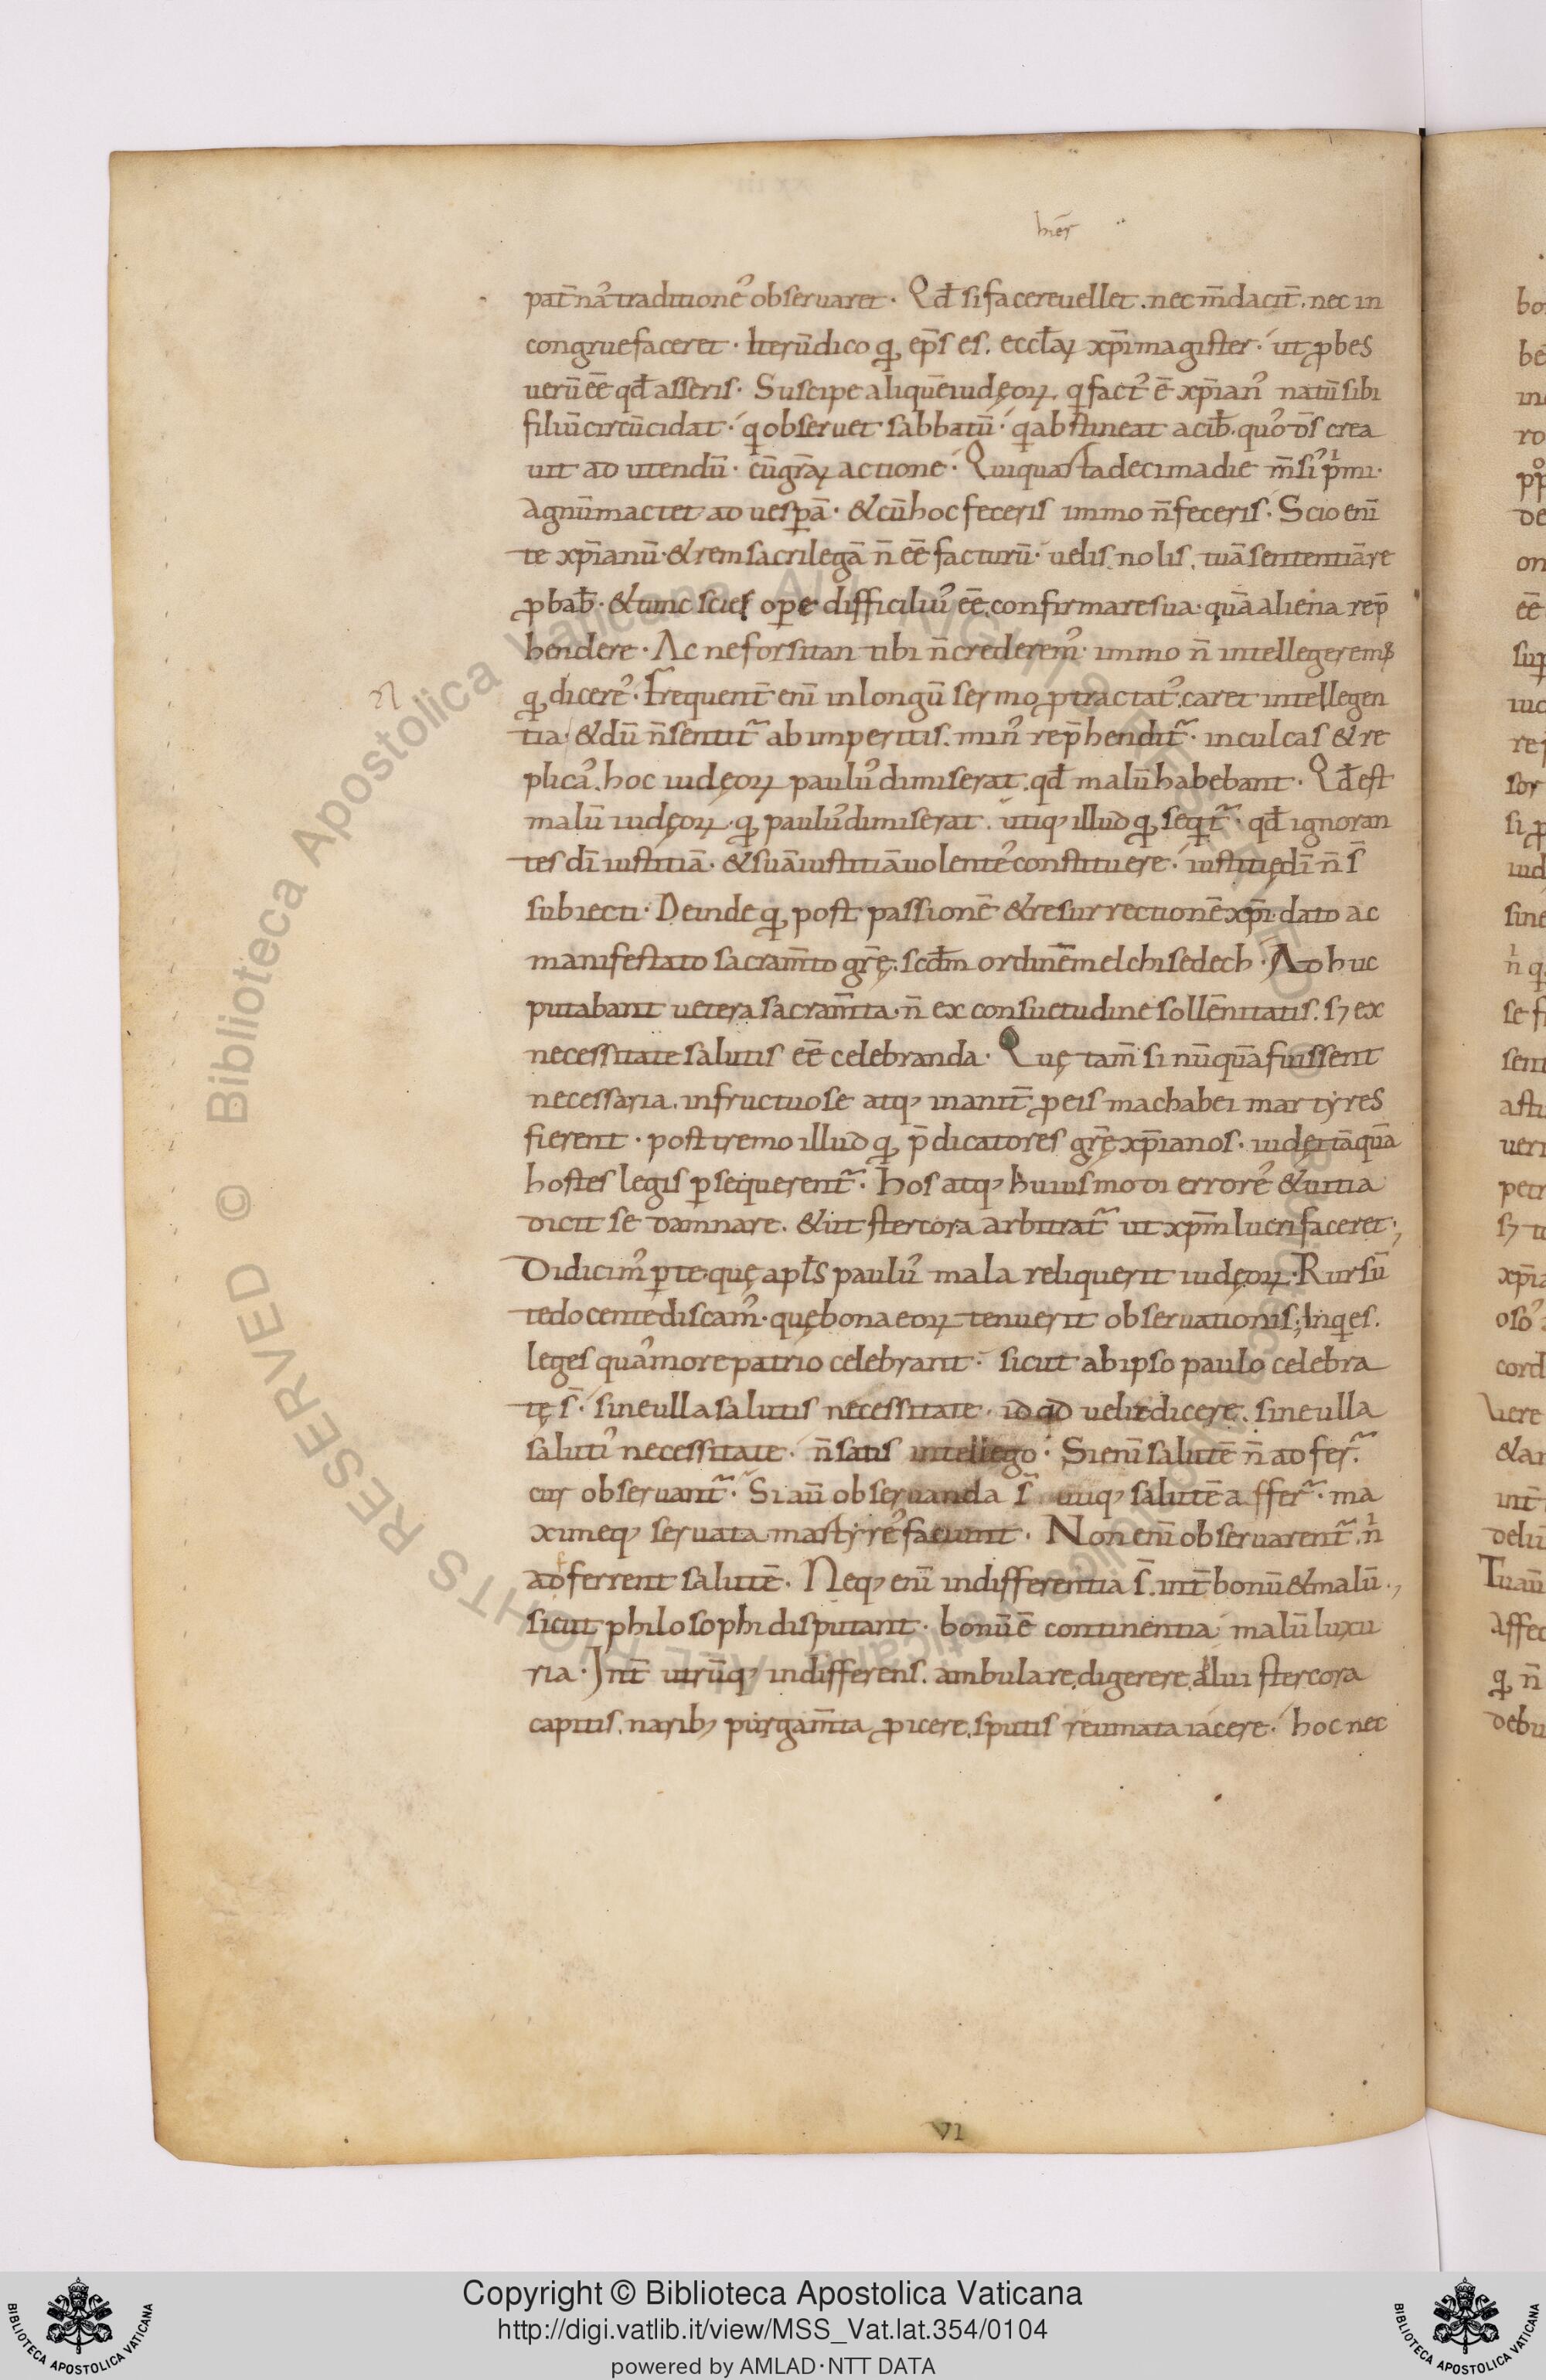 hieř
pat̄nā traditionē obseruaret. Qđ si facere uellet. nec m̄dacit̄. nec in
congrue faceret. Iterū dico q; ep̄s es. eccl̄aꝝ xp̄i magister. ut ꝓbes
uerū eē qđ asseris. Suscipe aliquē iudęoꝝ. q̇ fact᾽ ē xp̄ian᾽ natū sibi
filiū circūcidat. q̇ obseruet sabbatū. q̇ abstineat a cib̄. quo᾽ d̄s crea
uit ad utendū. cū gr̄aꝝ actione. Qui quarta decima die m̄si᾽ p̍mi.
Agnū mactet ad uesꝑā. & cū hoc feceris immo n̄ feceris. Scio enī
te xp̄ianū. & rem sacrilegā n̄ eē facturū. uelis. nolis. tuā sententiā re
ꝓbab̄. & tunc scies oꝑe difficiliu᾽ eē. confirmare sua. quā aliena rep̄
hendere. Ac ne forsitan tibi n̄ crederem᾽. immo n̄ intellegerem᾽
q; dicere᾽. Frequent̄ enī in longū sermo ꝓtractat᾽. caret intellegen
tia. & dū n̄ sentit̃ ab imperitis. min᾽ rep̄hendit̃. inculcas & re
plica᾽. hoc iudęoꝝ paulu᾽ dimiserat. qđ malū habebant. Qđ est
malū iudęoꝝ. q; paulu᾽ dimiserat. utiq; illud q; seq̇t̃. qđ ignoran
tes dī iustitiā. & suā iustitiā uolente᾽ constituere. iustitię dī n̄ s̄
subiecti. Deinde q; post passionē & resurrectionē xp̄i. dato ac
manifestato sacram̄to gr̄ę. scđm ordinē melchisedech. Adhuc
putabant uetera sacram̄ta. n̄ ex consuetudine sollēnitatis. sꝫ ex
necessitate salutis eē celebranda. Quę tam̄ si nūquā fuissent
necessaria. infructuose atq; inanit̄ ꝓ eis machabei martyres
fierent. postremo illud q; p̄dicatores gr̄ę xp̄ianos. iudęi tāquā
hostes legis ꝑsequerent̃. Hos atq; huiusmodi errore᾽ & uitia
dicit se damnare. & ut stercora arbitrat̃ ut xp̄m lucri faceret;
Didicim᾽ ꝑ te. quę apl̄s paulu᾽ mala reliquerit iudęoꝝ. Rursū
te docente discam᾽. quę bona eoꝝ tenuerit obseruationis; Inq̇es.
leges qua᾽ more patrio celebrant. sicut ab ipso paulo celebra
tę s̄. sine ulla salutis necessitate. id qđ uelis dicere. sine ulla
saluti᾽ necessitate. n̄ satis intellego. Si enī salutē n̄ adfer̃.
cur obseruant̃. Si aū obseruanda s̄ utiq; salutē affer̃. ma
ximeq; seruata martyre᾽ faciunt. Non enī obseruarent̃. n̍
adferrent salutē. Neq; enī indifferentia s̄. int̄ bonū & malū.,
sicut philosophi disputant. bonū ē continentia malū luxu
ria. Int̄ utrūq; indifferens. ambulare, digerere alui stercora
capitis. narib; purgam̄ta ꝓicere. sputis reumata iacere. hoc nec
VI
Copyright © Biblioteca Apostolica Vaticana
http://digi.vatlib.it/view/MSS_Vat.lat.354/0104
powered by AMLAD·NTT DATA